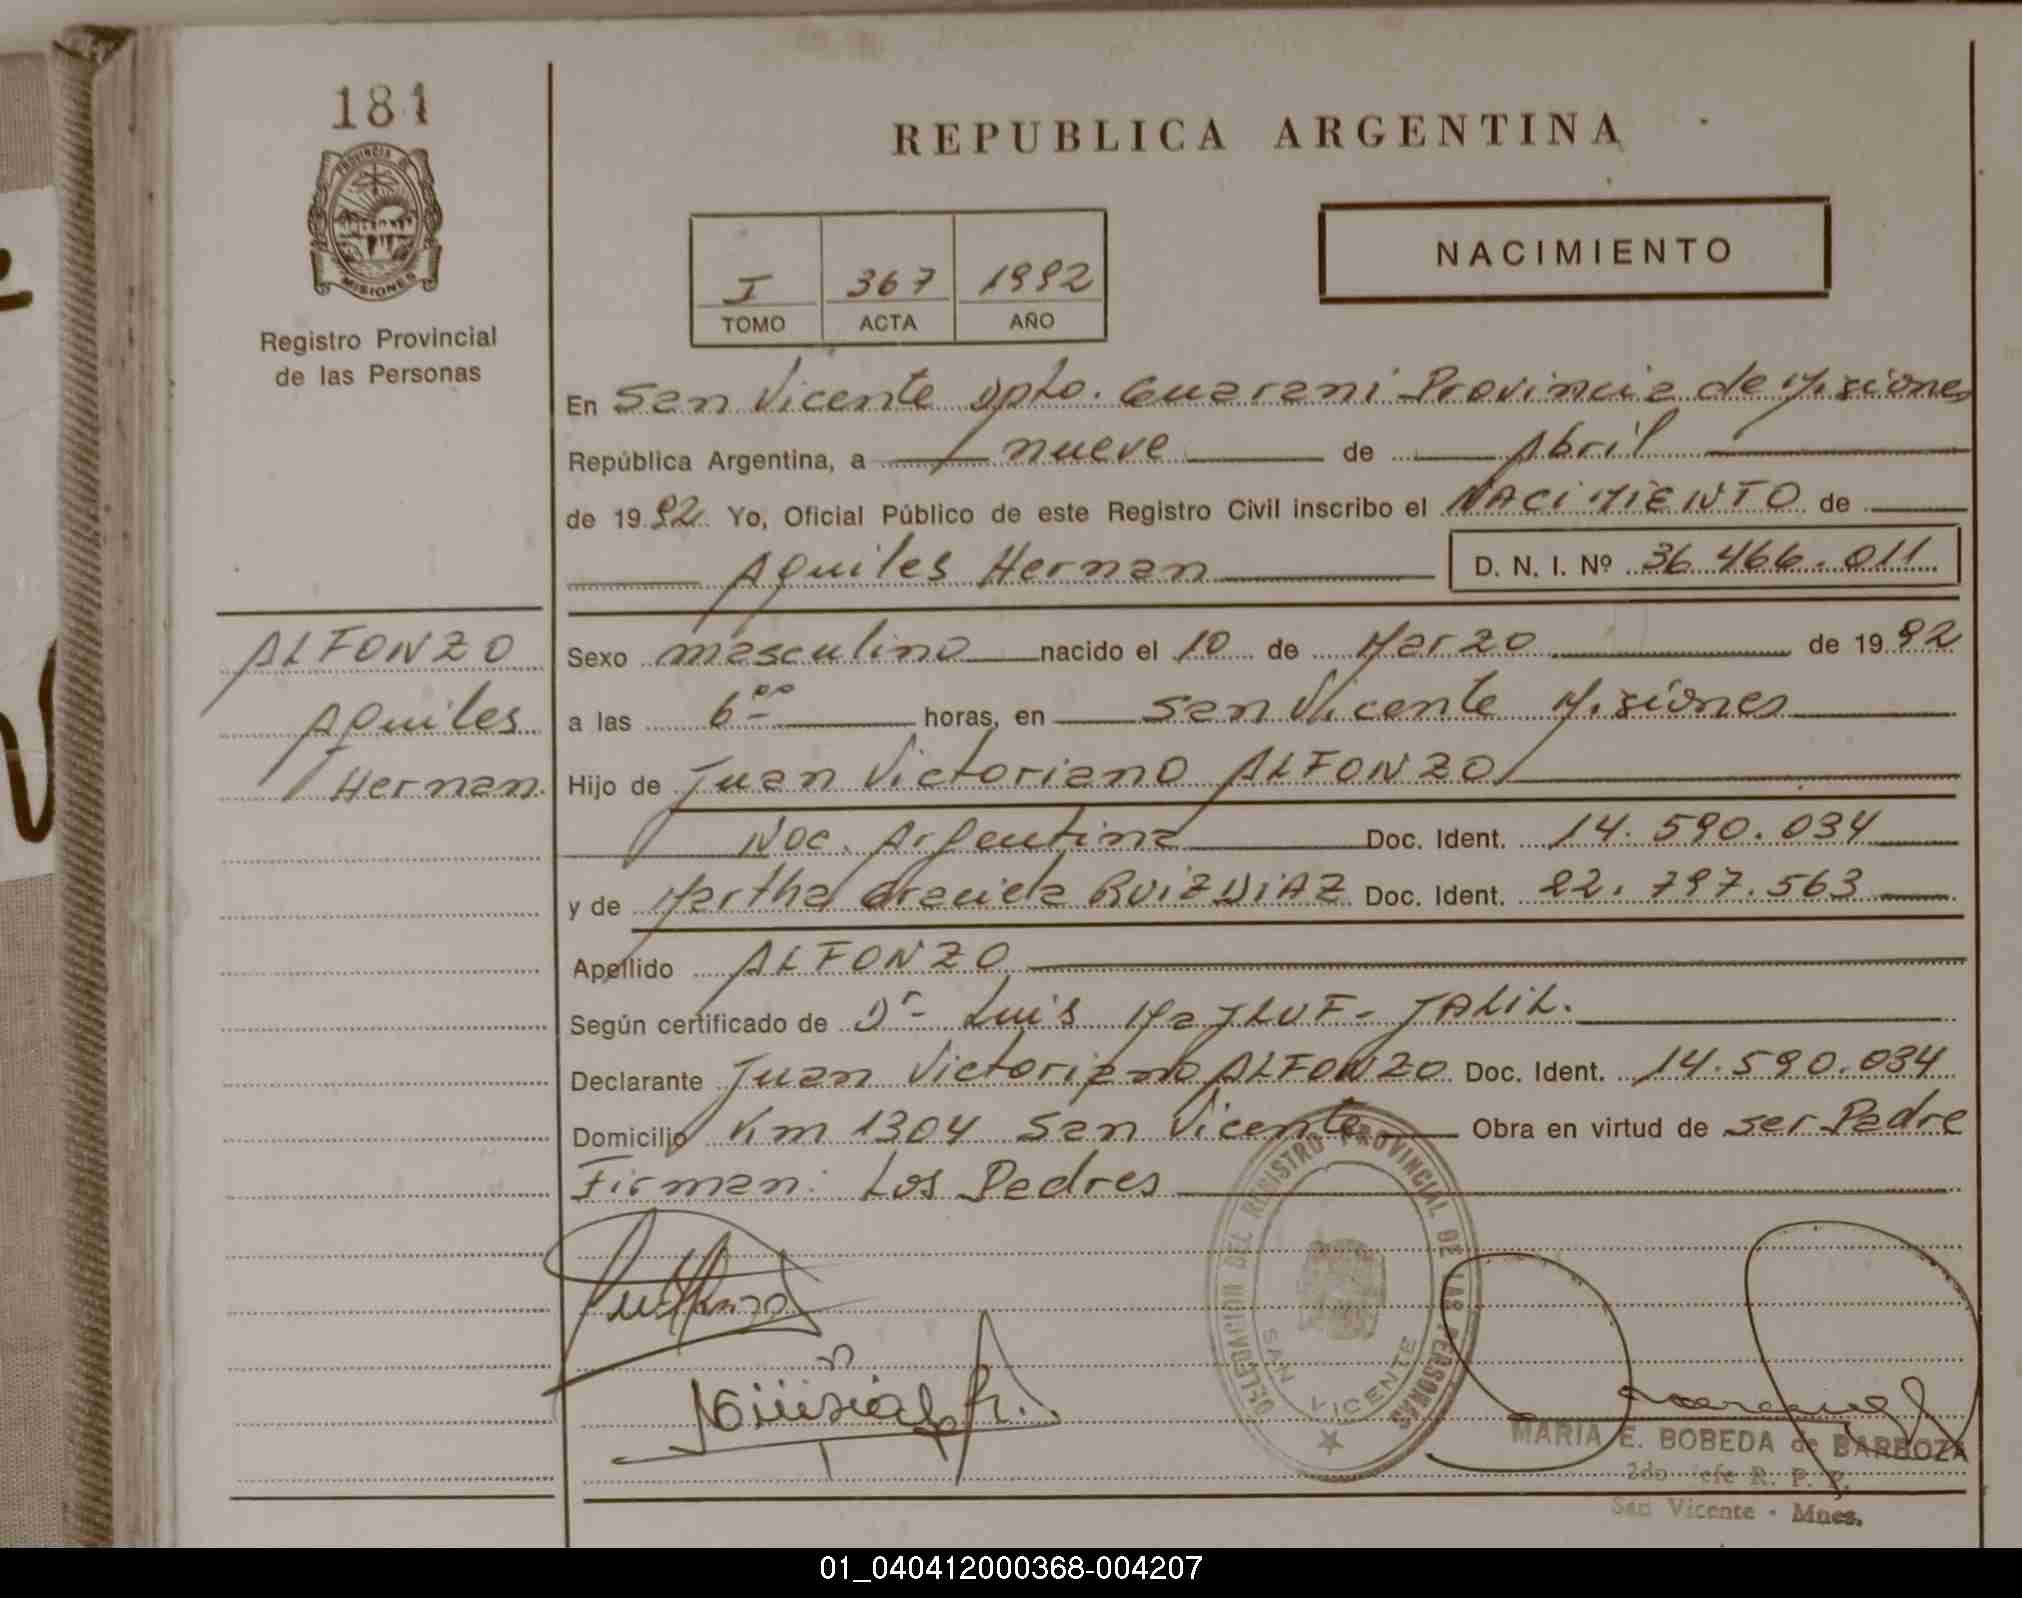 181
PROVINCIA DE
MISIONES
Registro Provincial
de las Personas
REPUBLICA ARGENTINA
NACIMIENTO
I 367 1992
TOMO ACTA AÑO
En San Vicente Dpto. Guarani Provincia de Misiones
República Argentina, a nueve de Abril
de 1992 Yo, Oficial Público de este Registro Civil inscribo el NACIMIENTO de
Aquiles Hernan D. N. I. Nº 36.466.011
ALFONZO
Aquiles
Hernan
Sexo masculino nacido el 10 de Marzo de 1992
a las 6 00 horas, en San Vicente Misiones
Hijo de Juan Victoriano ALFONZO
Nac. Argentina Doc. Ident. 14.590.034
y de Martha Graciela RUIZ DIAZ Doc. Ident. 22.797.563
Apellido ALFONZO
Según certificado de Dr- Luis MaJLUF- JALIL.
Declarante Juan Victoriano ALFONZO Doc. Ident. 14.590.034
Domicilio Km 1304 San Vicente Obra en virtud de ser Padre
Firman: Los Padres
DELEGACION DEL REGISTRO PROVINCIAL DE LAS PERSONAS
SAN VICENTE
MARIA E. BOBEDA de BARBOZA
2do Jefe R. P. P.
San Vicente - Mnes.
01_040412000368-004207